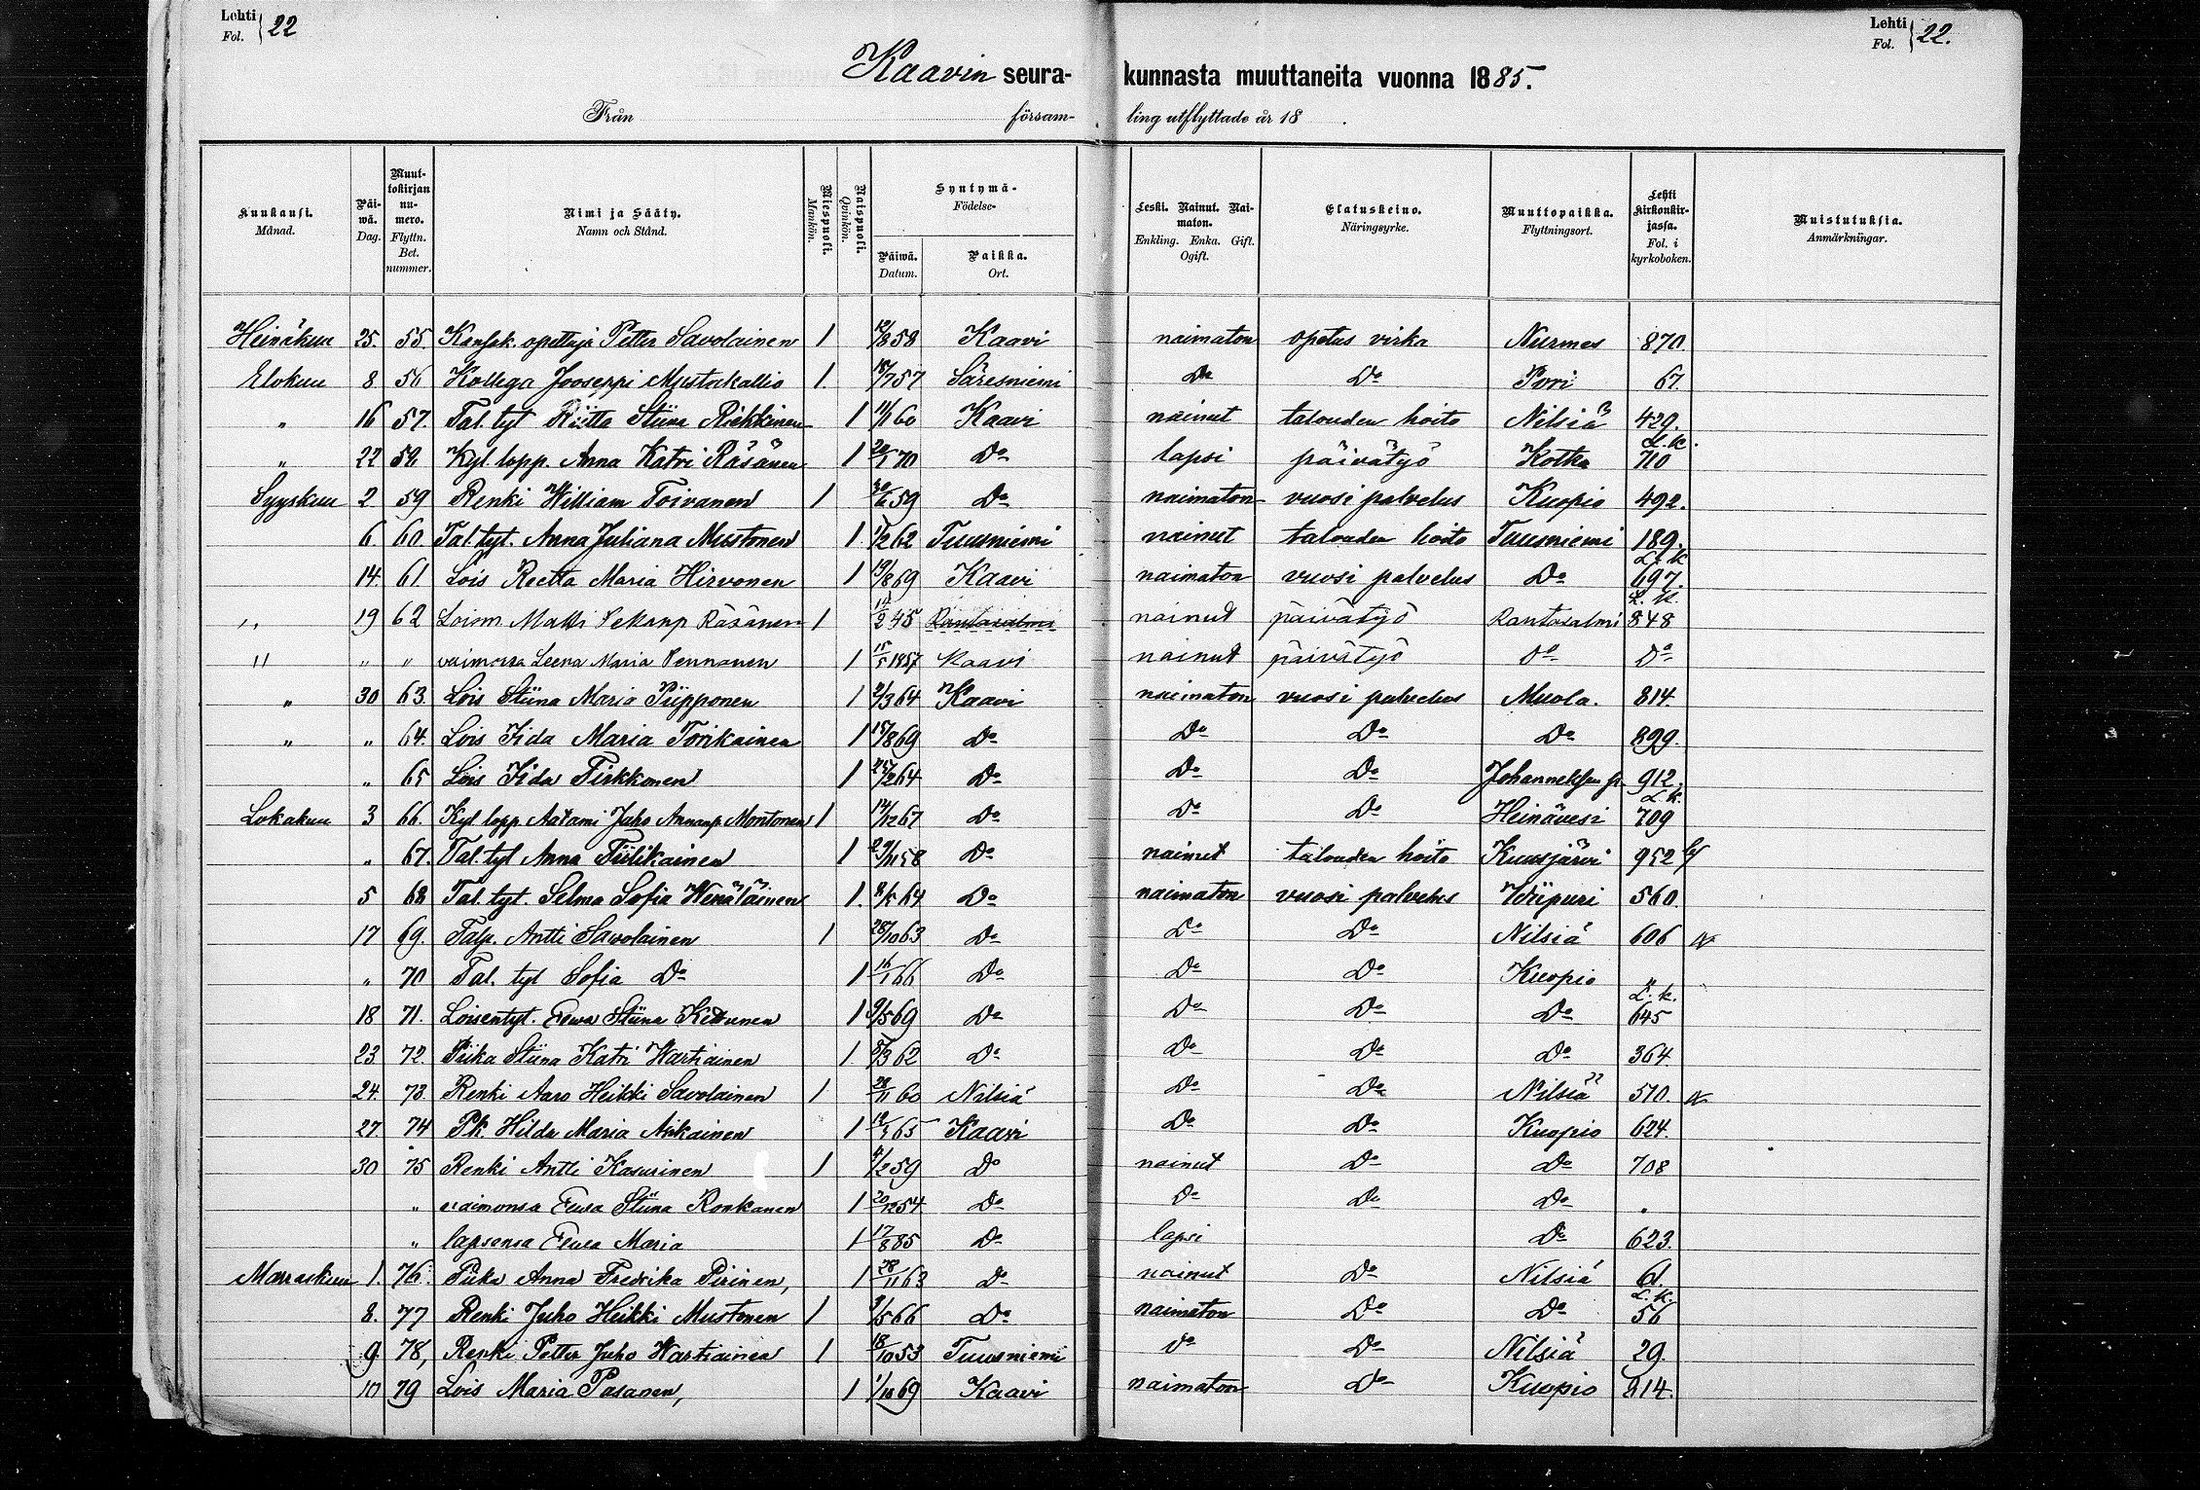 Lehti Fol. 22
Lehti Fol. 22.
Kaavin seurakunnasta muuttaneita vuonna 1885.
Från församling utflyttade år 18 .
Kuukausi. Månad. Päiwä. Dag. Muuttokirjan numero. Flyttn. Bet. nummer. Nimi ja Sääty. Namn och Stånd. Miespuoli. Mankön. Naispuoli. Qvinkön. Syntymä- Födelse- Päiwä. Datum. Paikka. Ort. Leski. Nainut. Naimaton. Enkling. Enka. Gift. Ogift. Elatuskeino. Näringsyrke. Muuttopaikka. Flyttningsort. Lehti kirkonkirjassa. Fol. i kyrkoboken. Muistutuksia. Anmärkningar.
Heinäkuu 25. 55. Kansak. opettaja Petter Savolainen 1 12/8 58 Kaavi naimaton opetus virka Nurmes 870.
Elokuu 8. 56 Kollega Jooseppi Mustakallio 1. 18/7 57 Säresniemi Do Do Pori 67.
" 16 57. Tal. tyt Riitta Stiina Rikkinen 1 11/1 60 Kaavi nainut talouden hoito Nilsiä 429.
" 22 58 Kyl. lopp. Anna Katri Räsänen 1 20/1 70 Do lapsi päivätyö Kotka L. k. 710
Syyskuu 2 59 Renki William Toivanen 1 30/6 59 Do naimaton vuosi palvelus Kuopio 492.
6. 60. Tal. tyt. Anna Juliana Mustonen 1. 17/2 62 Tuusniemi nainut talouden hoito Tuusniemi 189.
14. 61. Lois Reetta Maria Hirvonen 1 19/8 69 Kaavi naimaton vuosi palvelus Do L. k. 697.
" 19 62 Loism. Matti Pekanp Räsänen 1 14/2 45 Rantasalmi nainut päivätyö Rantasalmi L. k. 848
" " " vaimonsa Leena Maria Pennanen 1 15/5 1857 Kaavi nainut päivätyö Do Do
" 30 63. Lois Stiina Maria Piipponen 1 2/3 64 Kaavi naimaton vuosi palvelus Muola. 814.
" " 64. Lois Iida Maria Torikainen 1 15/8 69 Do Do Do Do 899.
" 65 Lois Iida Tirkkonen 1 27/2 64 Do Do Do Johanneksen 912.
Lokakuu 3 66. Kyl. lopp. Aatami Juho Annanp. Montonen 1 14/12 67 Do Do Do Heinävesi L. k. 709
" 67. Tal. tyt Anna Tiilikainen 1 29/11 58 Do nainut talouden hoito Kuusjärvi 952
5 68 Tal. tyt. Selma Sofia Wenäläinen 1. 8/5 64 Do naimaton vuosi palvelus Wiipuri 560.
17 69. Talp. Antti Savolainen 1 28/10 63 Do Do Do Nilsiä 606
" 70 Tal. tyt Sofia Do 1 16/1 66 Do Do Do Kuopio "
18 71. Loisentyt. Eewa Stiina Kettunen 1 9/5 69 Do Do Do Do L. k. 645
23 72. Piika Stiina Katri Wartiainen 1. 5/3 62 Do Do Do Do 364.
24. 73. Renki Aaro Heikki Savolainen 1 28/11 60 Nilsiä Do Do Nilsiä 510.
27. 74 Pk. Hilda Maria 1 65 Kaavi Do Do Kuopio 624.
30 75 Renki Antti Kasurinen 1 4/2 59 Do nainut Do Do 708
" vaimonsa Eewa Stiina Ronkanen 1 20/12 54 Do Do Do Do "
" lapsensa Eewa Maria 1 17/8 85 Do lapsi Do 623.
Marraskuu 1. 76. Piika Anna Fredrika Pirinen, 1 28/11 63 Do nainut Do Nilsiä 61.
8. 77 Renki Juho Heikki Mustonen 1 9/5 66 Do naimaton Do Do L. k. 56
9 78, Renki Petter Juho Wartiainen 1 18/10 53 Tuusniemi Do Do Nilsiä 29.
10 79 Lois Maria Pasanen, 1 1/10 69 Kaavi naimaton Do Kuopio 814.